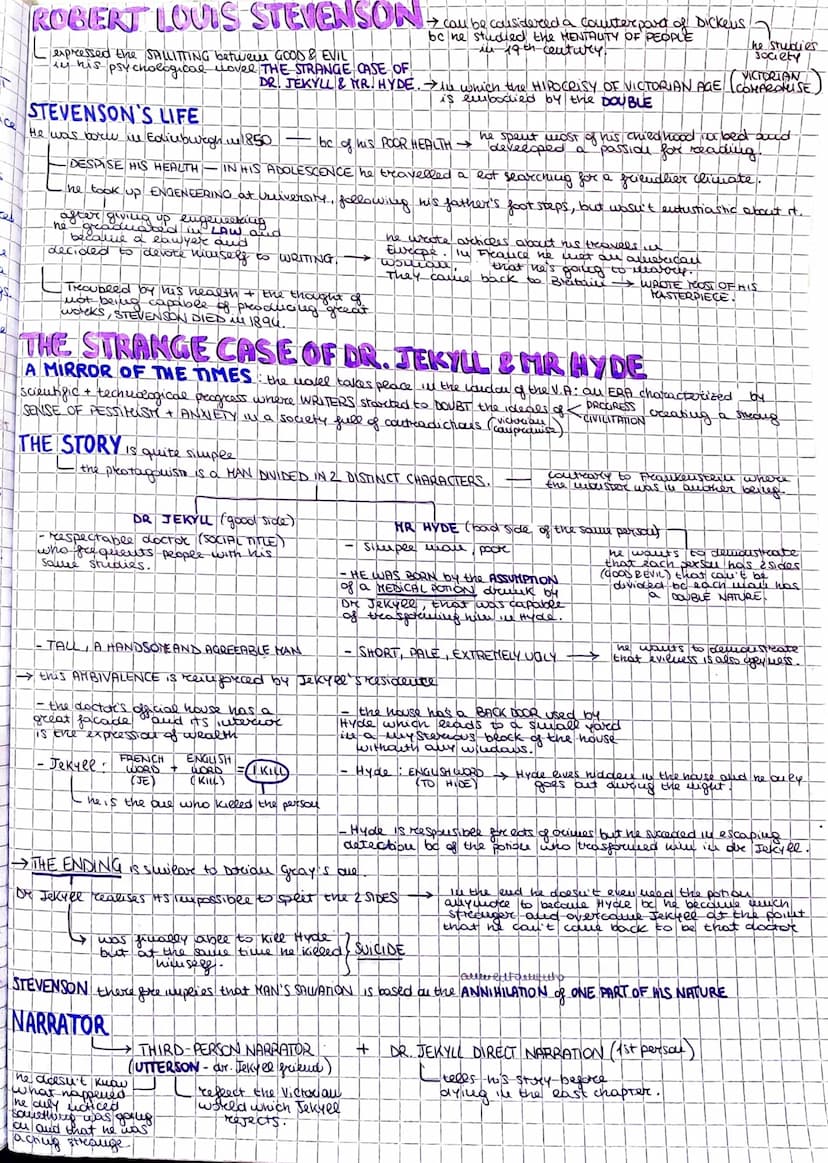 ROBERT LOUIS STEVENSON → can be considered a counterpart of Dickens
bc he studied the MENTALITY OF PEOPLE
in 19th century.
he studies
society
expressed the SPLITTING between GOOD & EVIL
in his psychological novel THE STRANGE CASE OF
DR. JEKYLL & MR. HYDE. → in which the HIPOCRISY OF VICTORIAN AGE (VICTORIAN COMPROMISE)
is embodied by the DOUBLE
STEVENSON'S LIFE
He was born in Edinburgh in 1850 — bc of his POOR HEALTH → he spent most of his childhood in bed and
developed a passion for reading.
DESPISE HIS HEALTH — IN HIS ADOLESCENCE he travelled a lot searching for a friendlier climate.
he took up ENGENEERING at University, following his father's foot steps, but wasn't entusiastic about it.
after giving up engeneering
he graduated in LAW and
became a lawyer and
decided to devote himself to WRITING. →
he wrote articles about his travels in
Europe. In France he met an american
woman, that he's going to marry.
They came back to Britain → WROTE MOST OF HIS
MASTERPIECE.
Troubled by his health + the thought of
not being capable of producing great
works, STEVENSON DIED in 1894.
THE STRANGE CASE OF DR. JEKYLL & MR HYDE
A MIRROR OF THE TIMES: the novel takes place in the London of the V.A: an ERA characterized by
scientific + technological progress where WRITERS started to DOUBT the ideals of < PROGRESS
CIVILITATION
creating a strong
SENSE OF PESSIMISM + ANXIETY in a society full of contradictions (victorian compromise)
THE STORY is quite simple
the protagonist is a MAN DIVIDED IN 2 DISTINCT CHARACTERS. — contrary to Frankenstein where
the monster was in another being.
DR JEKYLL (good side)
- respectable doctor (SOCIAL TITLE)
who frequents people with his
same studies.
MR HYDE (bad side of the same person)
- simple man, poor
- HE WAS BORN by the ASSUMPTION
of a MEDICAL POTION drunk by
Dr Jekyll, that was capable
of trasforming him in Hyde.
he wants to demonstrate
that each person has 2 sides
(GOOD & EVIL) that can't be
divided bc each man has
a DOUBLE NATURE.
- TALL, A HANDSOME AND AGREEABLE MAN
- SHORT, PALE, EXTREMELY UGLY → he wants to demonstrate
that evilness is also uglyness.
→ this AMBIVALENCE is reinforced by Jekyll's residence
- the doctor's official house has a
great facade and its interior
is the expression of wealth
- the house has a BACK DOOR used by
Hyde which leads to a small yard
in a mysterious block of the house
without any windows.
- Jekyll: FRENCH WORD (JE) + ENGLISH WORD (KILL) = I KILL
he is the one who killed the person
- Hyde: ENGLISH WORD (TO HIDE) → Hyde lives hidden in the house and he only
goes out during the night.
- Hyde is responsible for lots of crimes but he succeded in escaping
detection bc of the potion who trasformed him in dr Jekyll.
→ THE ENDING is similar to Dorian Gray's one.
Dr Jekyll realises it's impossible to split the 2 SIDES →
in the end he doesn't even need the potion
anymore to become Hyde bc he became much
stronger and overcame Jekyll at the point
that he can't come back to be that doctor
was finally able to kill Hyde
but at the same time he killed
himself.
SUICIDE
STEVENSON therefore implies that MAN'S SALVATION is based on the ANNIHILATION of ONE PART OF HIS NATURE
NARRATOR
→ THIRD-PERSON NARRATOR
(UTTERSON - dr. Jekyll friend)
+ DR. JEKYLL DIRECT NARRATION (1st person)
tells his story before
dying in the last chapter.
he doesn't know
what happened
he only noticed
something was going
on and that he was
acting strange.
reflect the Victorian
world which Jekyll
rejects.